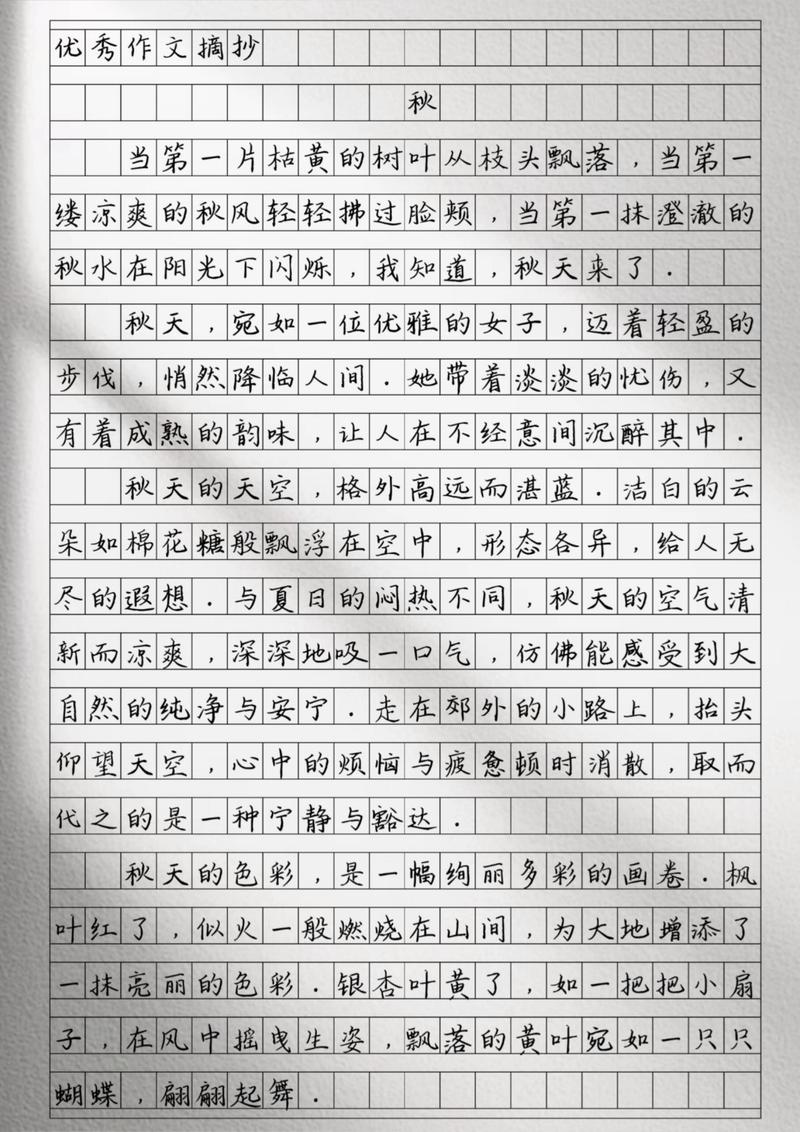 优秀作文摘抄
秋
当第一片枯黄的树叶从枝头飘落，当第一
缕凉爽的秋风轻轻拂过脸颊，当第一抹澄澈的
秋水在阳光下闪烁，我知道，秋天来了．
秋天，宛如一位优雅的女子，迈着轻盈的
步伐，悄然降临人间．她带着淡淡的忧伤，又
有着成熟的韵味，让人在不经意间沉醉其中．
秋天的天空，格外高远而湛蓝．洁白的云
朵如棉花糖般飘浮在空中，形态各异，给人无
尽的遐想．与夏日的闷热不同，秋天的空气清
新而凉爽，深深地吸一口气，仿佛能感受到大
自然的纯净与安宁．走在郊外的小路上，抬头
仰望天空，心中的烦恼与疲惫顿时消散，取而
代之的是一种宁静与豁达．
秋天的色彩，是一幅绚丽多彩的画卷．枫
叶红了，似火一般燃烧在山间，为大地增添了
一抹亮丽的色彩．银杏叶黄了，如一把把小扇
子，在风中摇曳生姿，飘落的黄叶宛如一只只
蝴蝶，翩翩起舞．